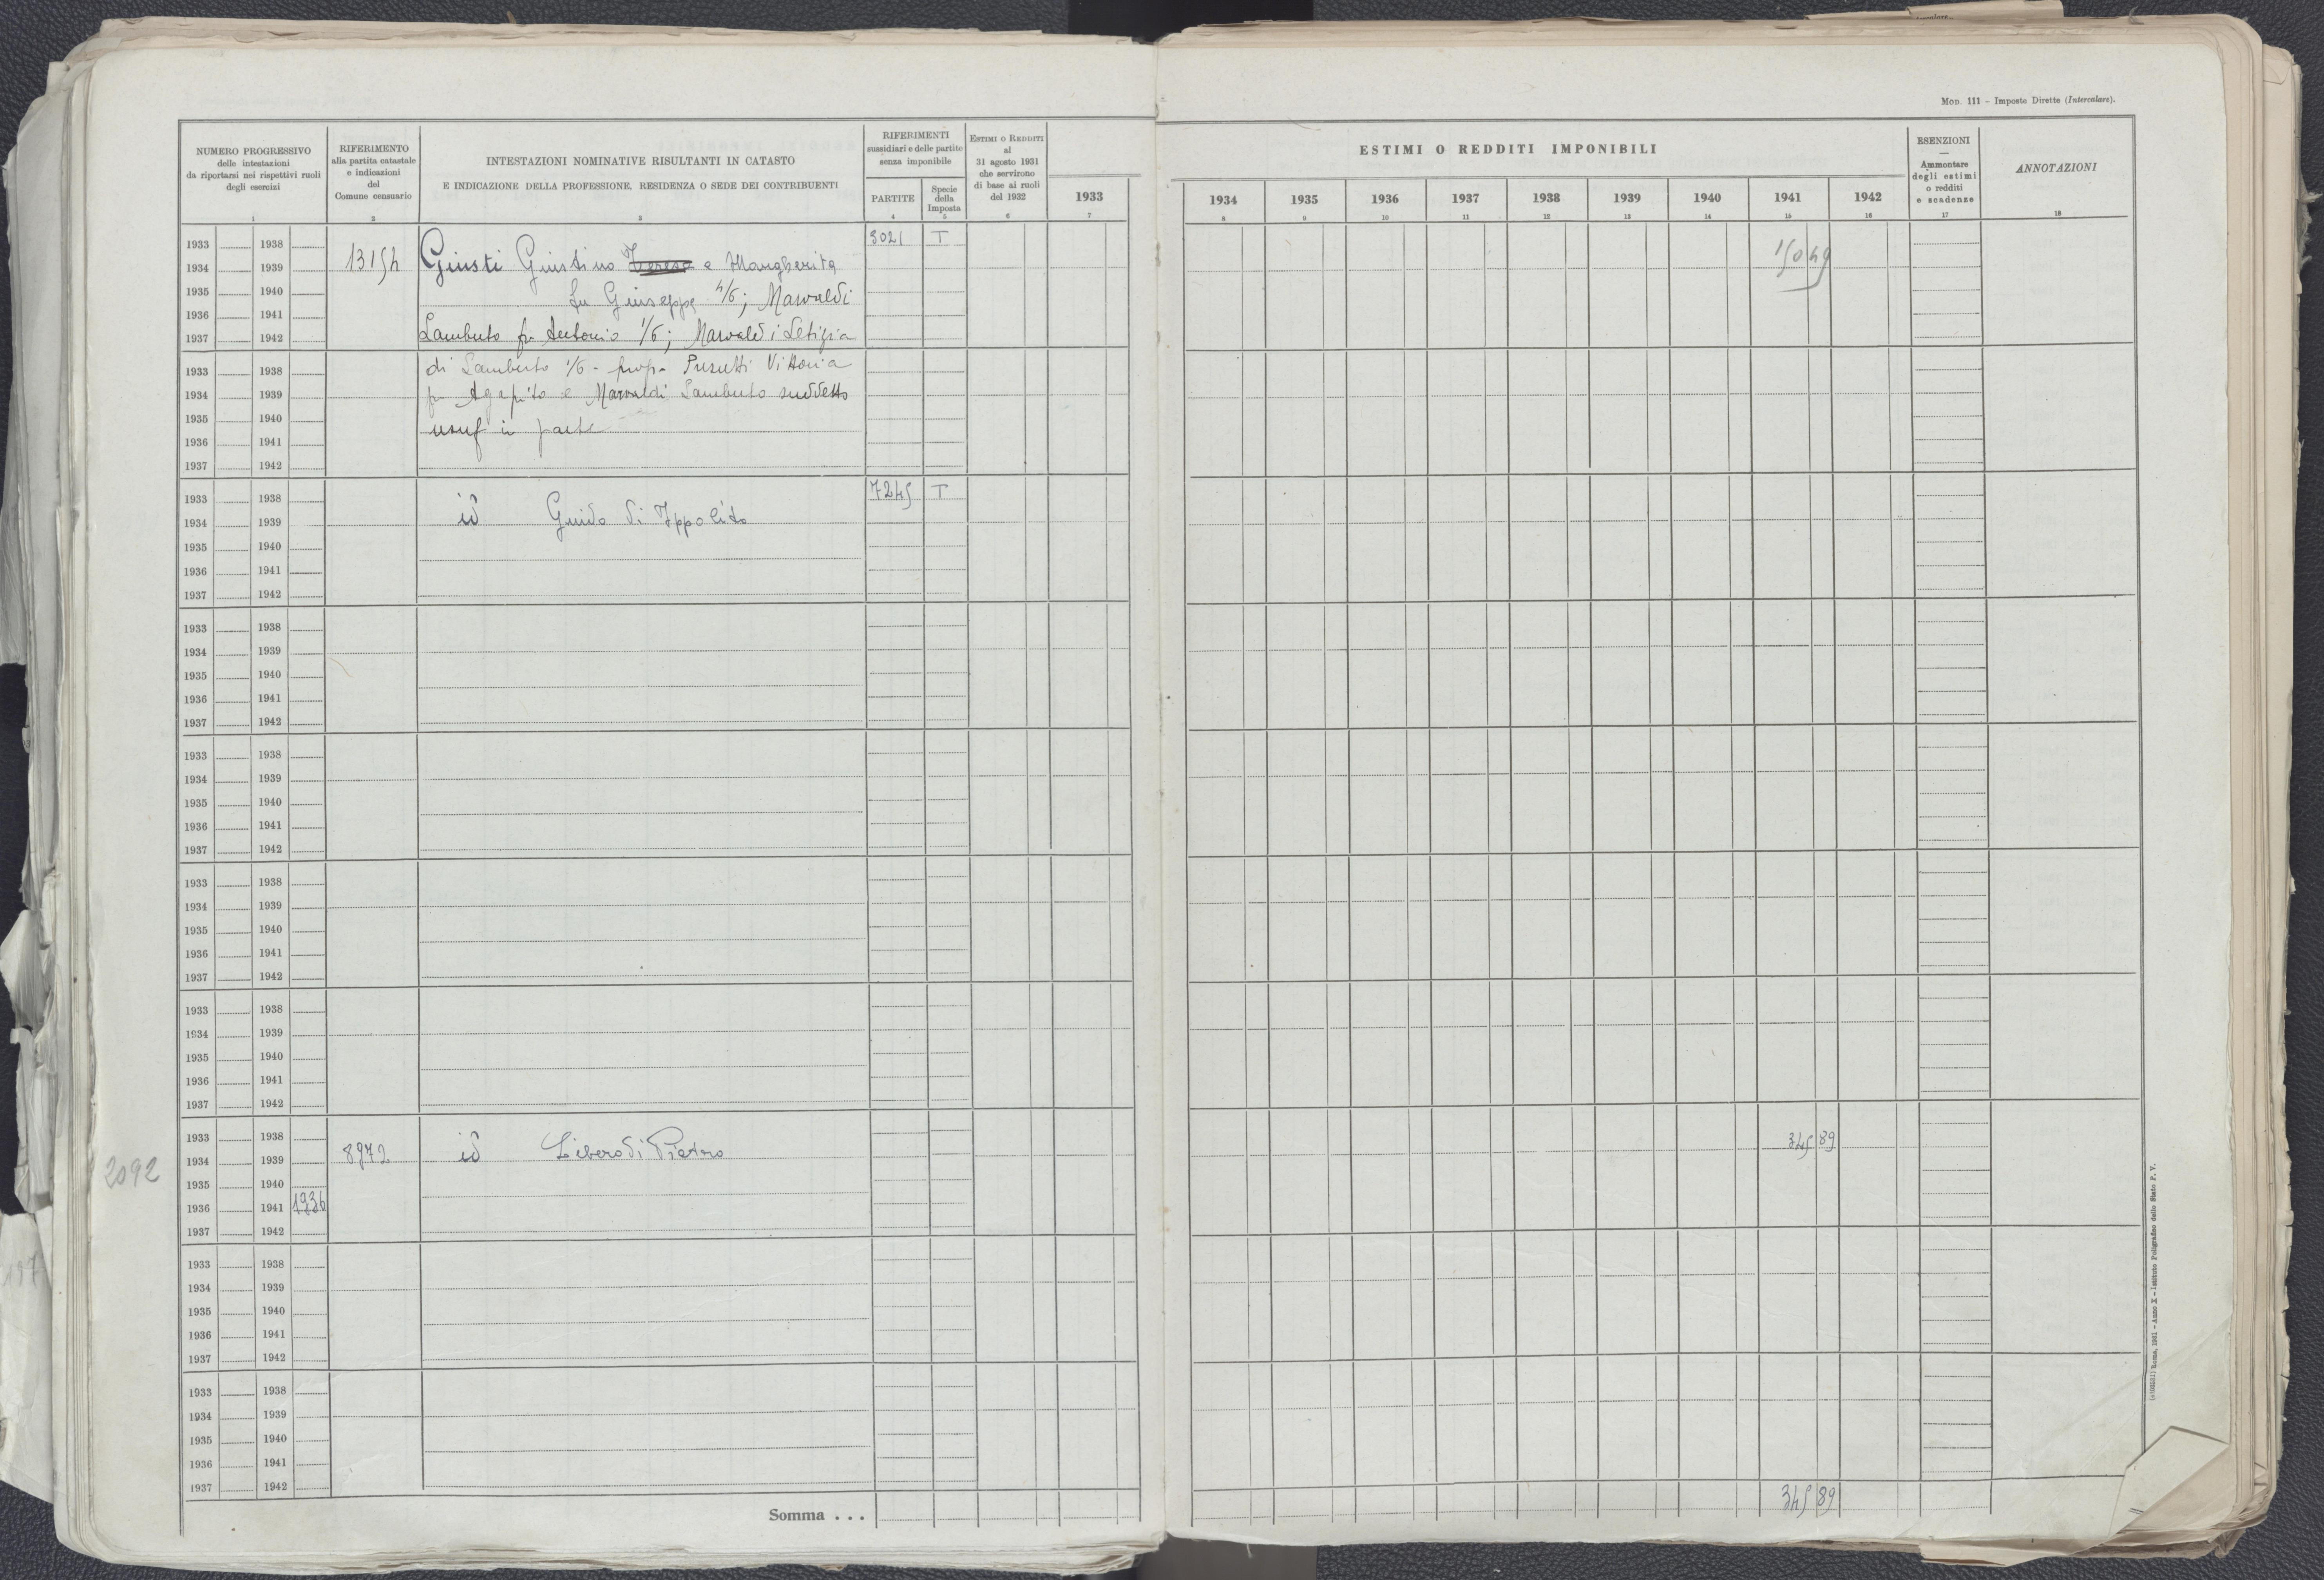 Mod. 111 - Imposte Dirette (Intercalare).
NUMERO PROGRESSIVO
delle intestazioni
da riportarsi nei rispettivi ruoli
degli esercizi
1
RIFERIMENTO
alla partita catastale
e indicazioni
del
Comune censuario
2
INTESTAZIONI NOMINATIVE RISULTANTI IN CATASTO
E INDICAZIONE DELLA PROFESSIONE, RESIDENZA O SEDE DEI CONTRIBUENTI
3
RIFERIMENTI
sussidiari e delle partite
senza imponibile
PARTITE
4
Specie
della
Imposta
5
Estimi o Redditi
al
31 agosto 1931
che servirono
di base ai ruoli
del 1932
6
1933
7
ESTIMI O REDDITI IMPONIBILI
1934 1935 1936 1937 1938 1939 1940 1941 1942
8 9 10 11 12 13 14 15 16
ESENZIONI
—
Ammontare
degli estimi
o redditi
e scadenze
17
ANNOTAZIONI
18
1933 1938 3021 T
1934 1939 13154 Giusti Giustino Teresa e Margherita 150 49
1935 1940 fu Giuseppe 4/6; Marvaldi
1936 1941
1937 1942 Lamberto fu Antonio 1/6; Marvaldi Letizia
1933 1938 di Lamberto 1/6 - prop-  Vittoria
1934 1939 fu Agapito e Marvaldi Lamberto suddetto
1935 1940 usuf in parte
1936 1941
1937 1942
1933 1938 7245 T
1934 1939 id Guido di Ippolito
1935 1940
1936 1941
1937 1942
1933 1938
1934 1939
1935 1940
1936 1941
1937 1942
1933 1938
1934 1939
1935 1940
1936 1941
1937 1942
1933 1938
1934 1939
1935 1940
1936 1941
1937 1942
1933 1938
1934 1939
1935 1940
1936 1941
1937 1942
1933 1938
2092 1934 1939 8972 id Libero di Pietro 345 89
1935 1940
1936 1941 1936
1937 1942
1933 1938
1934 1939
1935 1940
1936 1941
1937 1942
1933 1938
1934 1939
1935 1940
1936 1941
1937 1942
Somma . . . 345 89
Roma, 1931 - Anno X - Istituto Poligrafico dello Stato P. V.